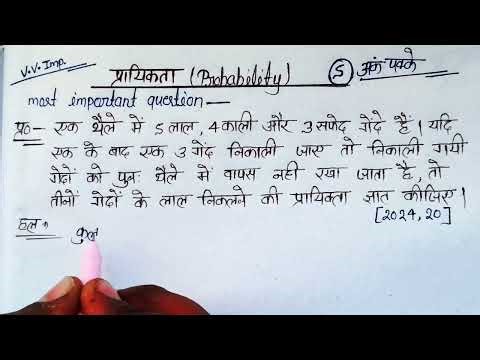 V.V. Imp.
प्रायिकता (Probability) 5 अंक पक्के
most important question —
प्र०- एक थैले में 5 लाल, 4 काली और 3 सफेद गेंदे हैं। यदि
एक के बाद एक 3 गेंद निकाली जाए तो निकाली गयी
गेदों को पुनः थैले में वापस नही रखा जाता है, तो
तीनों गेदों के लाल निकलने की प्रायिकता ज्ञात कीजिए।
[2024, 20]
हल→ कुल